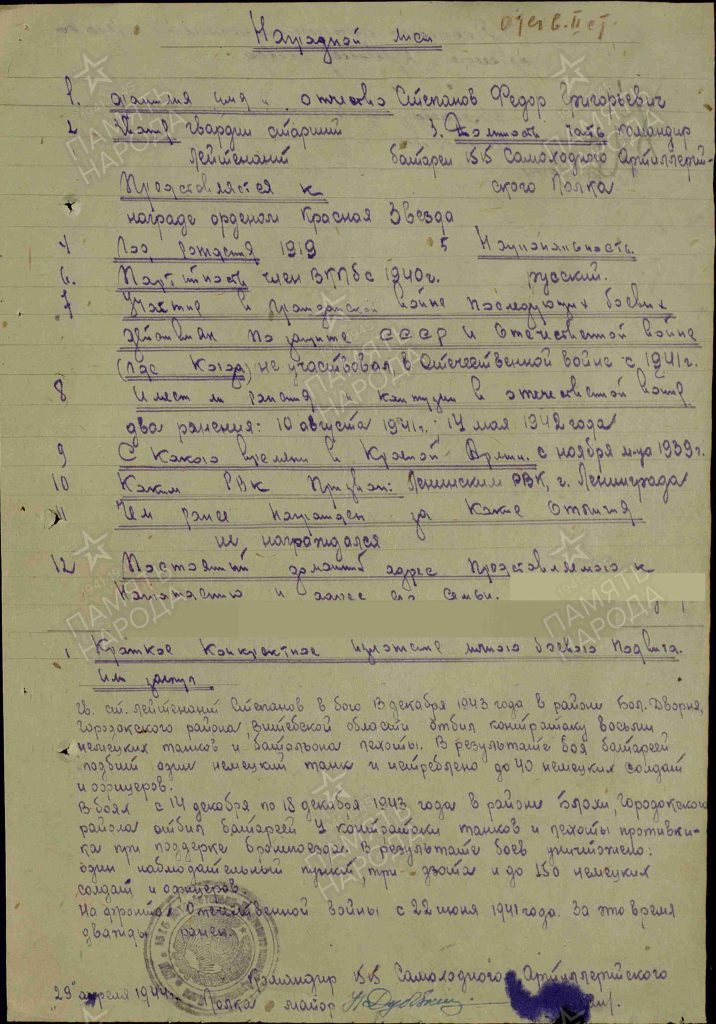 Отеч в. II ст.
Наградной лист
1. Фамилия имя и отчество Степанов Федор Григорьевич
2 Чин гвардии старший лейтенант
3. Должность часть командир батареи 1515 Самоходного Артиллерийского Полка
Представляется к
награде орденом Красная Звезда
4 Год рождения 1919
5 Национальность русский.
6. Партийность член ВКПб с 1940г.
7 Участие в гражданской войне последующих боевых
действиях по защите СССР и отечественной войне
(где когда) не участвовал, в Отечественной войне с 1941г.
8 Имеет ли ранения и контузии в отечественной войне
два ранения: 10 августа 1941г.; 14 мая 1942 года
9 С какого времени в Красной Армии. с ноября м-ца 1939г.
10 Каким РВК призван: Ленинским РВК, г. Ленинграда
11 Чем ранее награжден за какие отличия
не награждался
12 Постоянный домашний адрес представляемого к
и адрес его семьи.
1 Краткое конкретное изложение личного боевого подвига.
или заслуг.
Гв. ст. лейтенант Степанов в бою 13 декабря 1943 года в районе Бол. Дворня,
Городокского района, Витебской области отбил контратаку восьми
немецких танков и батальона пехоты. В результате боя батареей
подбит один немецкий танк и истреблено до 40 немецких солдат
и офицеров.
В боях с 14 декабря по 18 декабря 1943 года в районе Блохи, Городокского
района отбил батареей 4 контратаки танков и пехоты противни-
ка при поддержке бронепоезда. В результате боев уничтожено:
один наблюдательный пункт, три дзота и до 150 немецких
солдат и офицеров.
На фронтах Отечественной войны с 22 июня 1941 года. За это время
дважды ранен.
Командир 1515 Самоходного Артиллерийского
29 апреля 1944г. Полка майор
ПАМЯТЬ НАРОДА